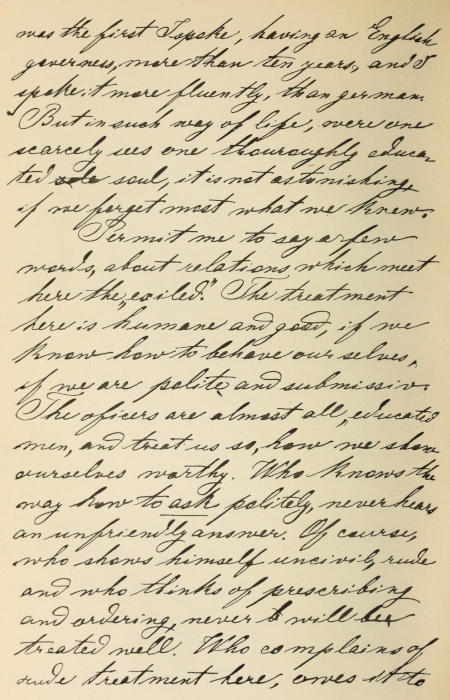 was the first I spoke, having an English
governess, more than ten years, and I
spoke it more fluently, than german.
But in such way of life, were one
scarcely sees one thouroughly educa-
ted soul, it is not astonishing
if we forget most what we knew.
Permit me to say a few
words, about relations, which meet
here the „exiled." The treatment
here is humane and good, if we
know how to behave our selves,
if we are polite and submissiv.
The oficers are almost all, educated
men, and treat us so, how we show
ourselves worthy. Who knows the
way how to ask politely, never hears
an unfriendly answer. Of course,
who shows himself uncivil, rude
and who thinks of prescribing
and ordering, never will bee
treated well. Who complains of
rude treatment here, owes it to